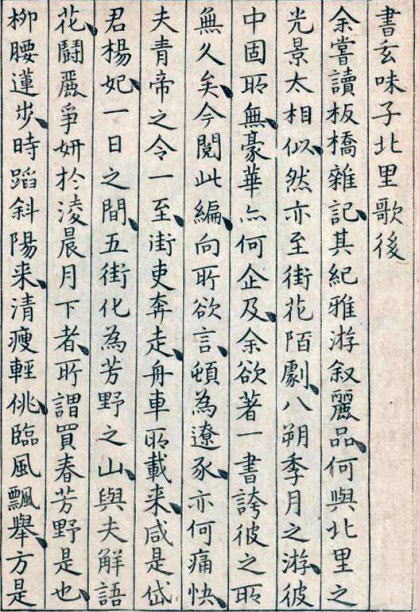 書玄味子北里歌後
余嘗讀板橋雜記、其紀雅游叙麗品、何與北里之
光景太相似、然亦至街花陌劇、八朔季月之游、彼
中固所無、豪華亦何企及、余欲著一書誇彼之所
無久矣、今閲此編、向所欲言、頓為遼豕、亦何痛快、
夫青帝之令一至、街吏奔走、舟車所載来、咸是岱
君楊妃、一日之間、五街化為芳野之山、與夫解語
花、闘麗爭妍於淩晨月下者、所謂買春芳野是也、
柳腰蓮步、時蹈斜陽来、清瘦輕佻、臨風飄舉、方是